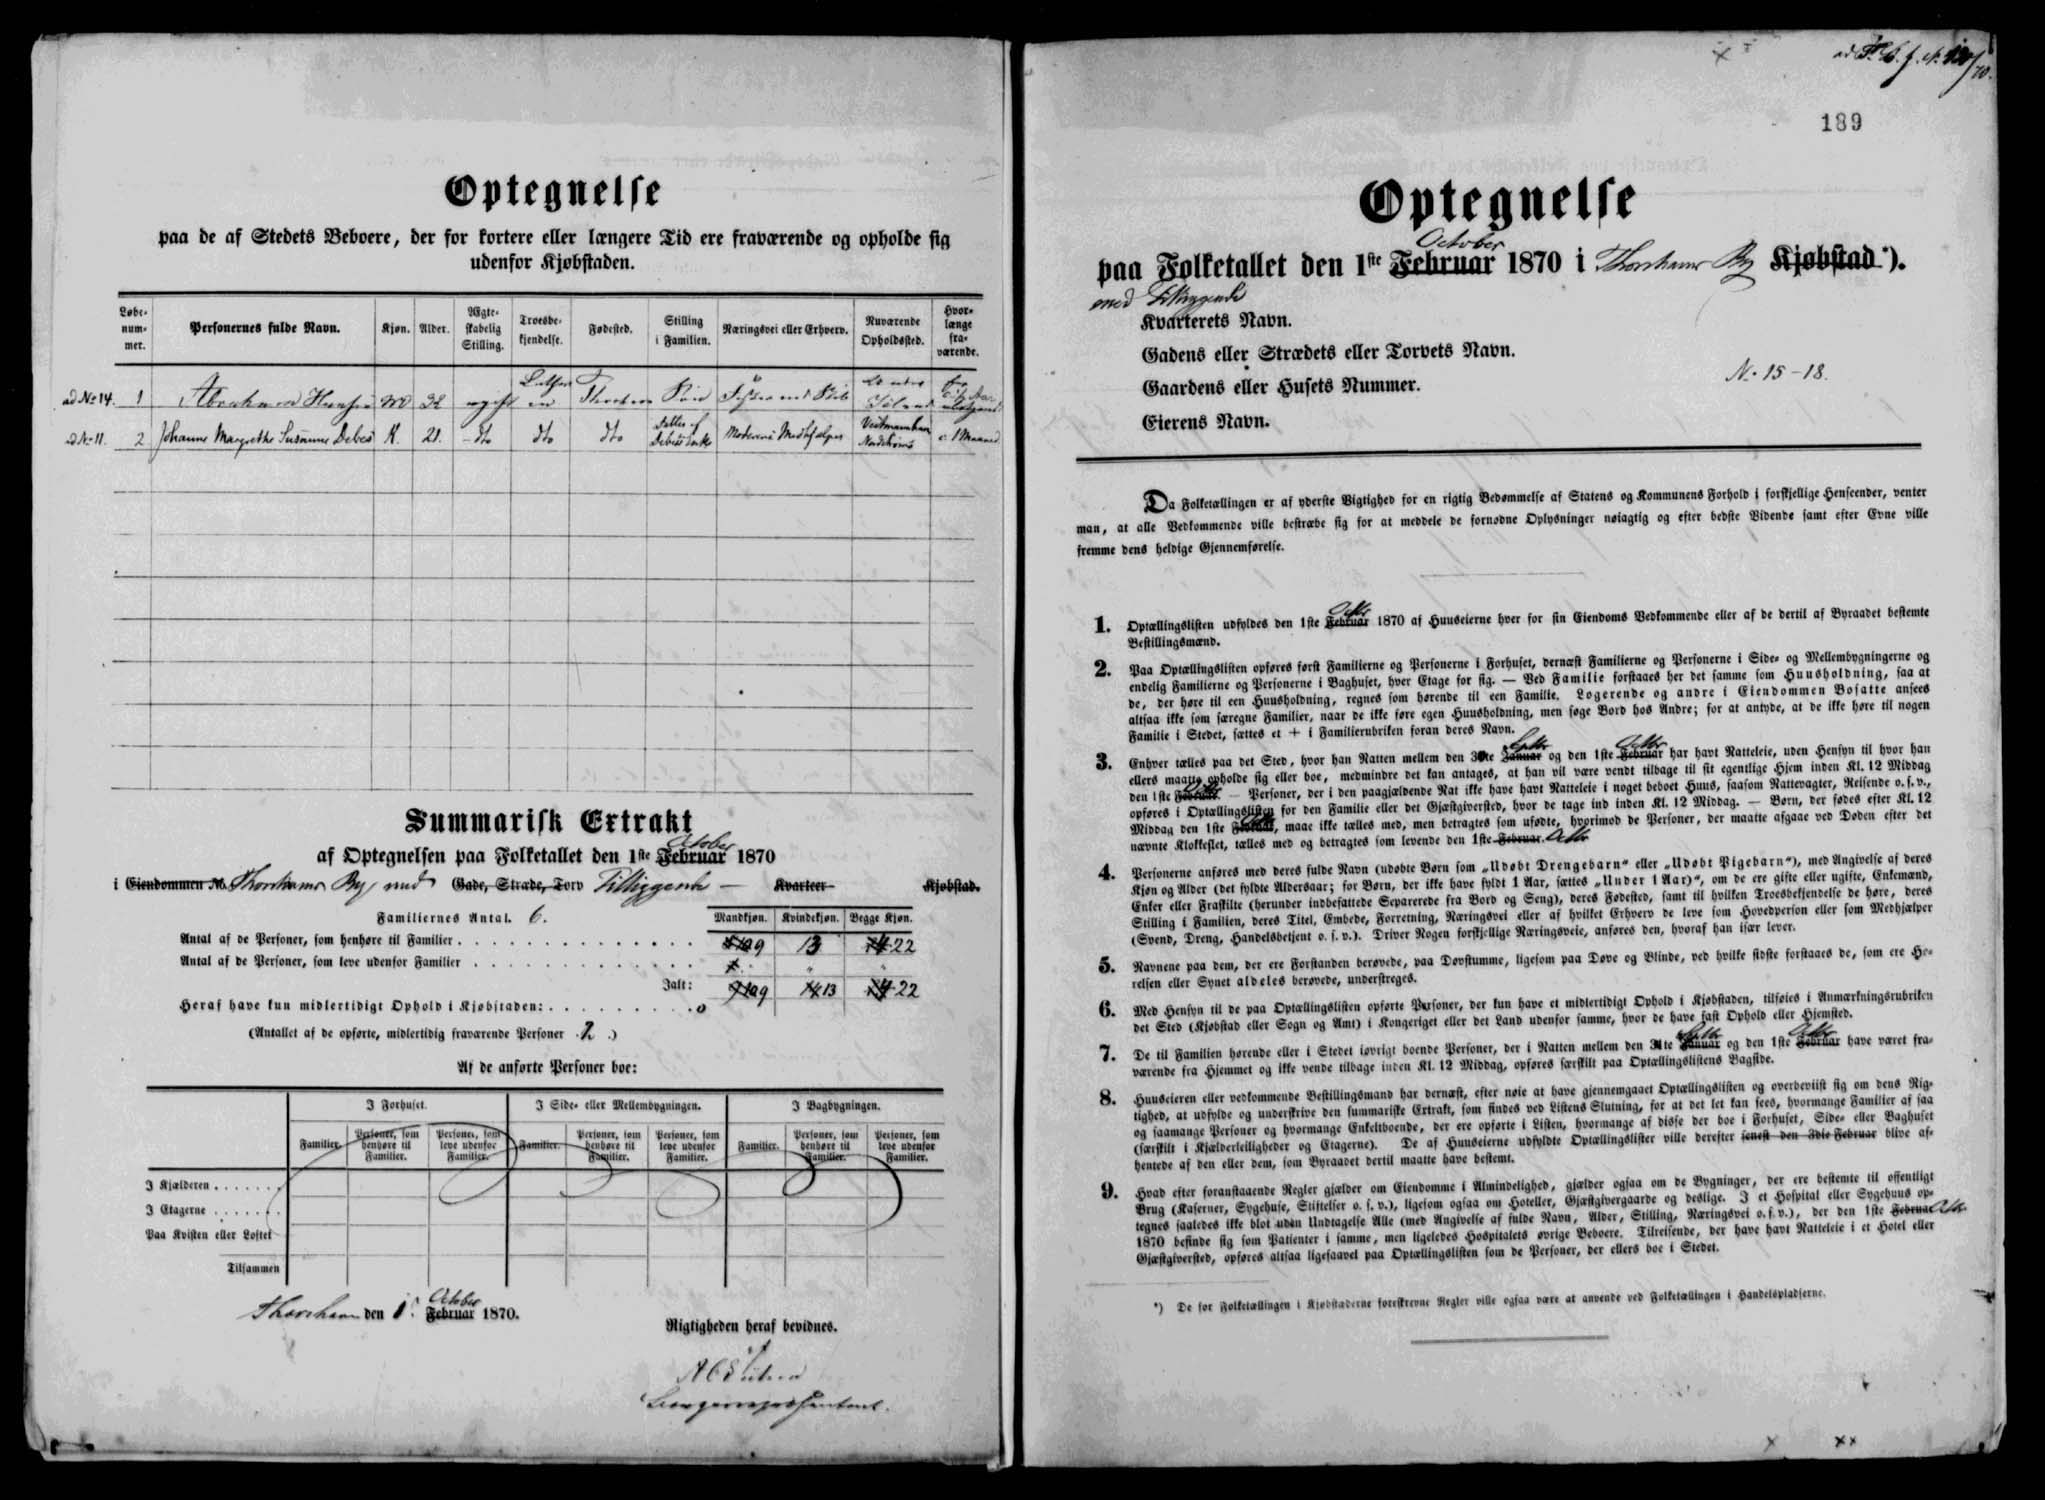 Optegnelse
paa de af Stedets Beboere, der for kortere eller længere Tid ere fraværende og opholde sig
udenfor Kjøbstaden.
Løbe-nummer. Personernes fulde Navn. Kjøn. Alder. Ægteskabelig Stilling. Troesbekjendelse. Fødested. Stilling i Familien. Næringsvei eller Erhverv. Nuværende Opholdssted. Hvorlænge fraværende.
ad No 14. 1 M 32 ugift
ad No 11. 2 Johanne Margrethe Susanne Debes K. 21. dto dto dto Moderens Medhjælper c. 1 Maaned
Summarisk Extrakt
October
af Optegnelsen paa Folketallet den 1ste Februar 1870
i Eiendommen No. Thorshavns By med Gade, Stræde, Torv Tilliggende Kvarteer Kjøbstad.
Familiernes Antal. 6.
Mandkjøn. Kvindekjøn. Begge Kjøn.
Antal af de Personer, som henhøre til Familier 9 13 22
Antal af de Personer, som leve udenfor Familier
Ialt: 9 13 22
Heraf have kun midlertidigt Ophold i Kjøbstaden: 0
(Antallet af de opførte, midlertidig fraværende Personer 2.)
Af de anførte Personer boe:
I Forhuset. I Side- eller Mellembygningen. I Bagbygningen.
Familier. Personer, som henhøre til Familier. Personer, som leve udenfor Familier. Familier. Personer, som henhøre til Familier. Personer, som leve udenfor Familier. Familier. Personer, som henhøre til Familier. Personer, som leve udenfor Familier.
I Kjælderen
I Etagerne
Paa Kvisten eller Loftet
Tilsammen
October
Thorshavn den 1. Februar 1870.
Rigtigheden heraf bevidnes.
189
Optegnelse
October
paa Folketallet den 1ste Februar 1870 i Thorshavns By Kjøbstad*).
med Tilliggende
Kvarterets Navn.
Gadens eller Strædets eller Torvets Navn.
Gaardens eller Husets Nummer.
No. 15-18.
Eierens Navn.
Da Folketællingen er af yderste Vigtighed for en rigtig Bedømmelse af Statens og Kommunens Forhold i forskjellige Henseender, venter
man, at alle Vedkommende ville bestræbe sig for at meddele de fornødne Oplysninger nøiagtig og efter bedste Vidende samt efter Evne ville
fremme dens heldige Gjennemførelse.
Octbr
1. Optællingslisten udfyldes den 1ste Februar 1870 af Huuseierne hver for sin Eiendoms Vedkommende eller af de dertil af Byraadet bestemte
Bestillingsmænd.
2. Paa Optællingslisten opføres først Familierne og Personerne i Forhuset, dernæst Familierne og Personerne i Side- og Mellembygningerne og
endelig Familierne og Personerne i Baghuset, hver Etage for sig. — Ved Familie forstaaes her det samme som Huusholdning, saa at
de, der høre til een Huusholdning, regnes som hørende til een Familie. Logerende og andre i Eiendommen Bosatte ansees
altsaa ikke som særegne Familier, naar de ikke føre egen Huusholdning, men søge Bord hos Andre; for at antyde, at de ikke høre til nogen
Familie i Stedet, sættes et + i Familierubriken foran deres Navn.
Septbr Octbr
3. Enhver tælles paa det Sted, hvor han Natten mellem den 30te Januar og den 1ste Februar har havt Natteleie, uden Hensyn til hvor han
ellers maatte opholde sig eller boe, medmindre det kan antages, at han vil være vendt tilbage til sit egentlige Hjem inden Kl. 12 Middag
den 1ste Februar. — Personer, der i den paagjældende Nat ikke have havt Natteleie i noget beboet Huus, saasom Nattevagter, Reisende o. s. v.,
opføres i Optællingslisten for den Familie eller det Gjæstgiversted, hvor de tage ind inden Kl. 12 Middag. — Børn, der fødes efter Kl. 12
Middag den 1ste Februar, maae ikke tælles med, men betragtes som ufødte, hvorimod de Personer, der maatte afgaae ved Døden efter det
nævnte Klokkeslet, tælles med og betragtes som levende den 1ste Februar. Octbr
4. Personerne anføres med deres fulde Navn (udøbte Børn som „Udøbt Drengebarn“ eller „Udøbt Pigebarn“), med Angivelse af deres
Kjøn og Alder (det fyldte Aldersaar; for Børn, der ikke have fyldt 1 Aar, sættes „Under 1 Aar)“, om de ere gifte eller ugifte, Enkemænd,
Enker eller Fraskilte (herunder indbefattede Separerede fra Bord og Seng), deres Fødested, samt til hvilken Troesbekjendelse de høre, deres
Stilling i Familien, deres Titel, Embede, Forretning, Næringsvei eller af hvilket Erhverv de leve som Hovedperson eller som Medhjælper
(Svend, Dreng, Handelsbetjent o. s. v.). Driver Nogen forskjellige Næringsveie, anføres den, hvoraf han især lever.
5. Navnene paa dem, der ere Forstanden berøvede, paa Døvstumme, ligesom paa Døve og Blinde, ved hvilke sidste forstaaes de, som ere Hørelsen eller Synet aldeles berøvede, understreges.
6. Med Hensyn til de paa Optællingslisten opførte Personer, der kun have et midlertidigt Ophold i Kjøbstaden, tilføies i Anmærkningsrubriken
det Sted (Kjøbstad eller Sogn og Amt) i Kongeriget eller det Land udenfor samme, hvor de have fast Ophold eller Hjemsted.
Septbr Octbr
7. De til Familien hørende eller i Stedet iøvrigt boende Personer, der i Natten mellem den 31te Januar og den 1ste Februar have været fra-
værende fra Hjemmet og ikke vende tilbage inden Kl. 12 Middag, opføres særskilt paa Optællingslistens Bagside.
8. Huuseieren eller vedkommende Bestillingsmand har dernæst, efter nøie at have gjennemgaaet Optællingslisten og overbeviist sig om dens Rig-
tighed, at udfylde og underskrive den summariske Extrakt, som findes ved Listens Slutning, for at det let kan sees, hvormange Familier af saa
og saamange Personer og hvormange Enkeltboende, der ere opførte i Listen, hvormange af disse der boe i Forhuset, Side- eller Baghuset
(særskilt i Kjælderleiligheder og Etagerne). De af Huuseierne udfyldte Optællingslister ville derefter senest den 3die Februar blive af-
hentede af den eller dem, som Byraadet dertil maatte have bestemt.
9. Hvad efter foranstaaende Regler gjælder om Eiendomme i Almindelighed, gjælder ogsaa om de Bygninger, der ere bestemte til offentligt
Brug (Kaserner, Sygehuse, Stiftelser o. s. v.), ligesom ogsaa om Hoteller, Gjæstgivergaarde og deslige. I et Hospital eller Sygehuus op-
tegnes saaledes ikke blot uden Undtagelse Alle (med Angivelse af fulde Navn, Alder, Stilling, Næringsvei o. s. v.), der den 1ste Februar Octbr
1870 befinde sig som Patienter i samme, men ligeledes Hospitalets øvrige Beboere. Tilreisende, der have havt Natteleie i et Hotel eller
Gjæstgiversted, opføres altsaa ligesaavel paa Optællingslisten som de Personer, der ellers boe i Stedet.
*) De for Folketællingen i Kjøbstaderne foreskrevne Regler ville ogsaa være at anvende ved Folketællingen i Handelspladserne.